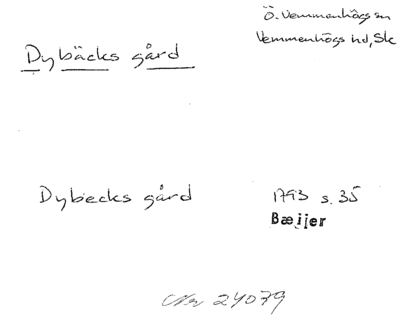 Ö. Vemmenhögs sn
Vemmenhögs hd, Sk
Dybäcks gård
Dybecks gård
1793 s. 35
Bæijer
Nr 24079